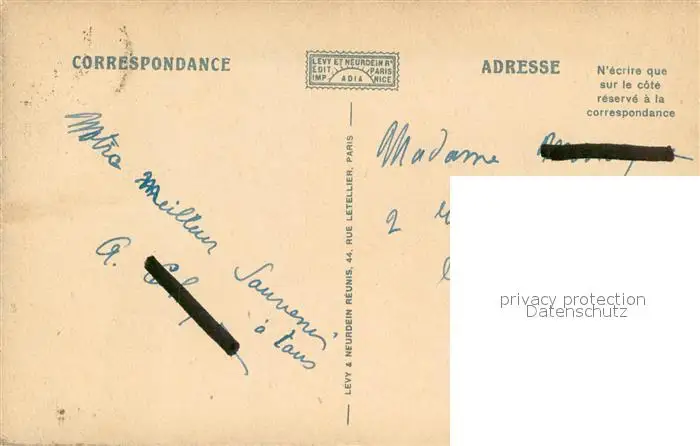 CORRESPONDANCE
LEVY ET NEURDEIN Rs
EDIT. PARIS
IMP. ADIA NICE
ADRESSE
N'écrire que
sur le côté
réservé à la
correspondance
Notre meilleur Souvenir
à tous
A.
LEVY & NEURDEIN REUNIS, 44, RUE LETELLIER, PARIS
Madame
2
privacy protection
Datenschutz